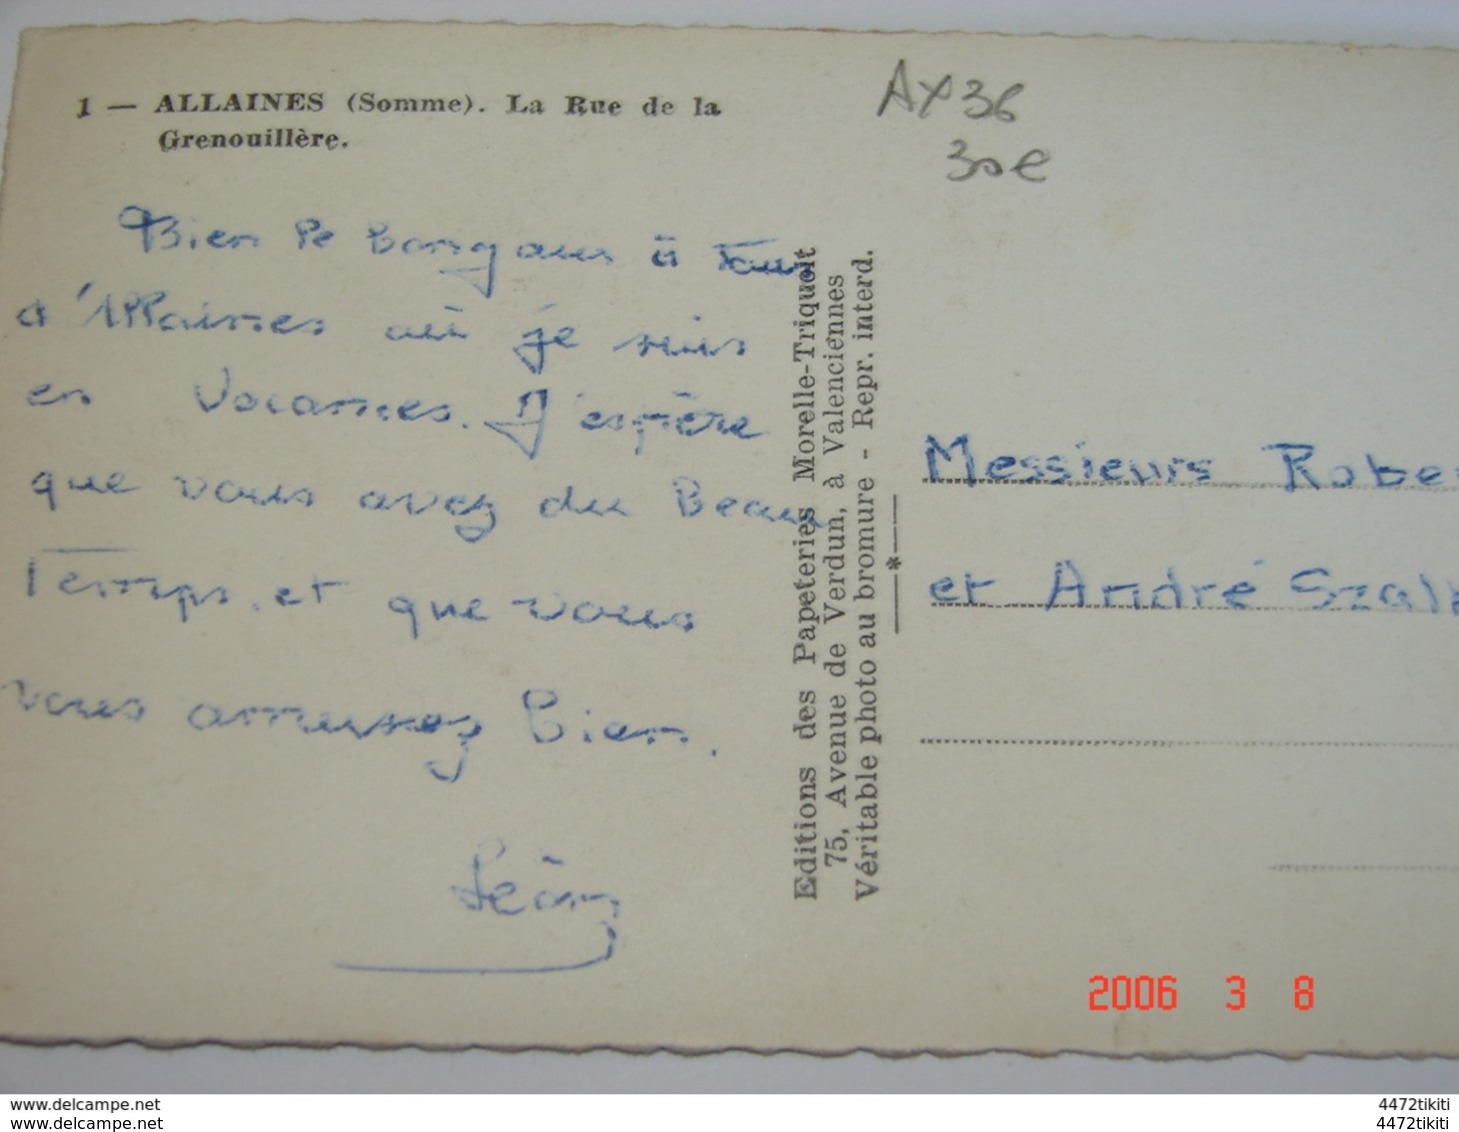 1 — ALLAINES (Somme). La Rue de la
Grenouillère.
AX36
30€
Bien le bongour à Tous
d'Allaines où je suis
en Vacances. J'espère
que vous avez du Beau
Temps. et que vous
vous amusez bien.
Léon
Editions des Papeteries Morelle-Triquoit
75, Avenue de Verdun, à Valenciennes
Véritable photo au bromure - Repr. interd.
*
Messieurs Rober
et André Szalk
2006 3 8
delcampe.net
delcampe.net
4472tikiti
4472tikiti